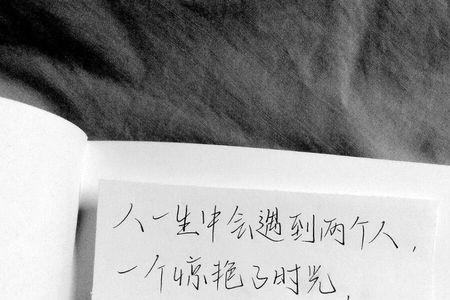 人一生中会遇到两个人，
一个惊艳了时光，